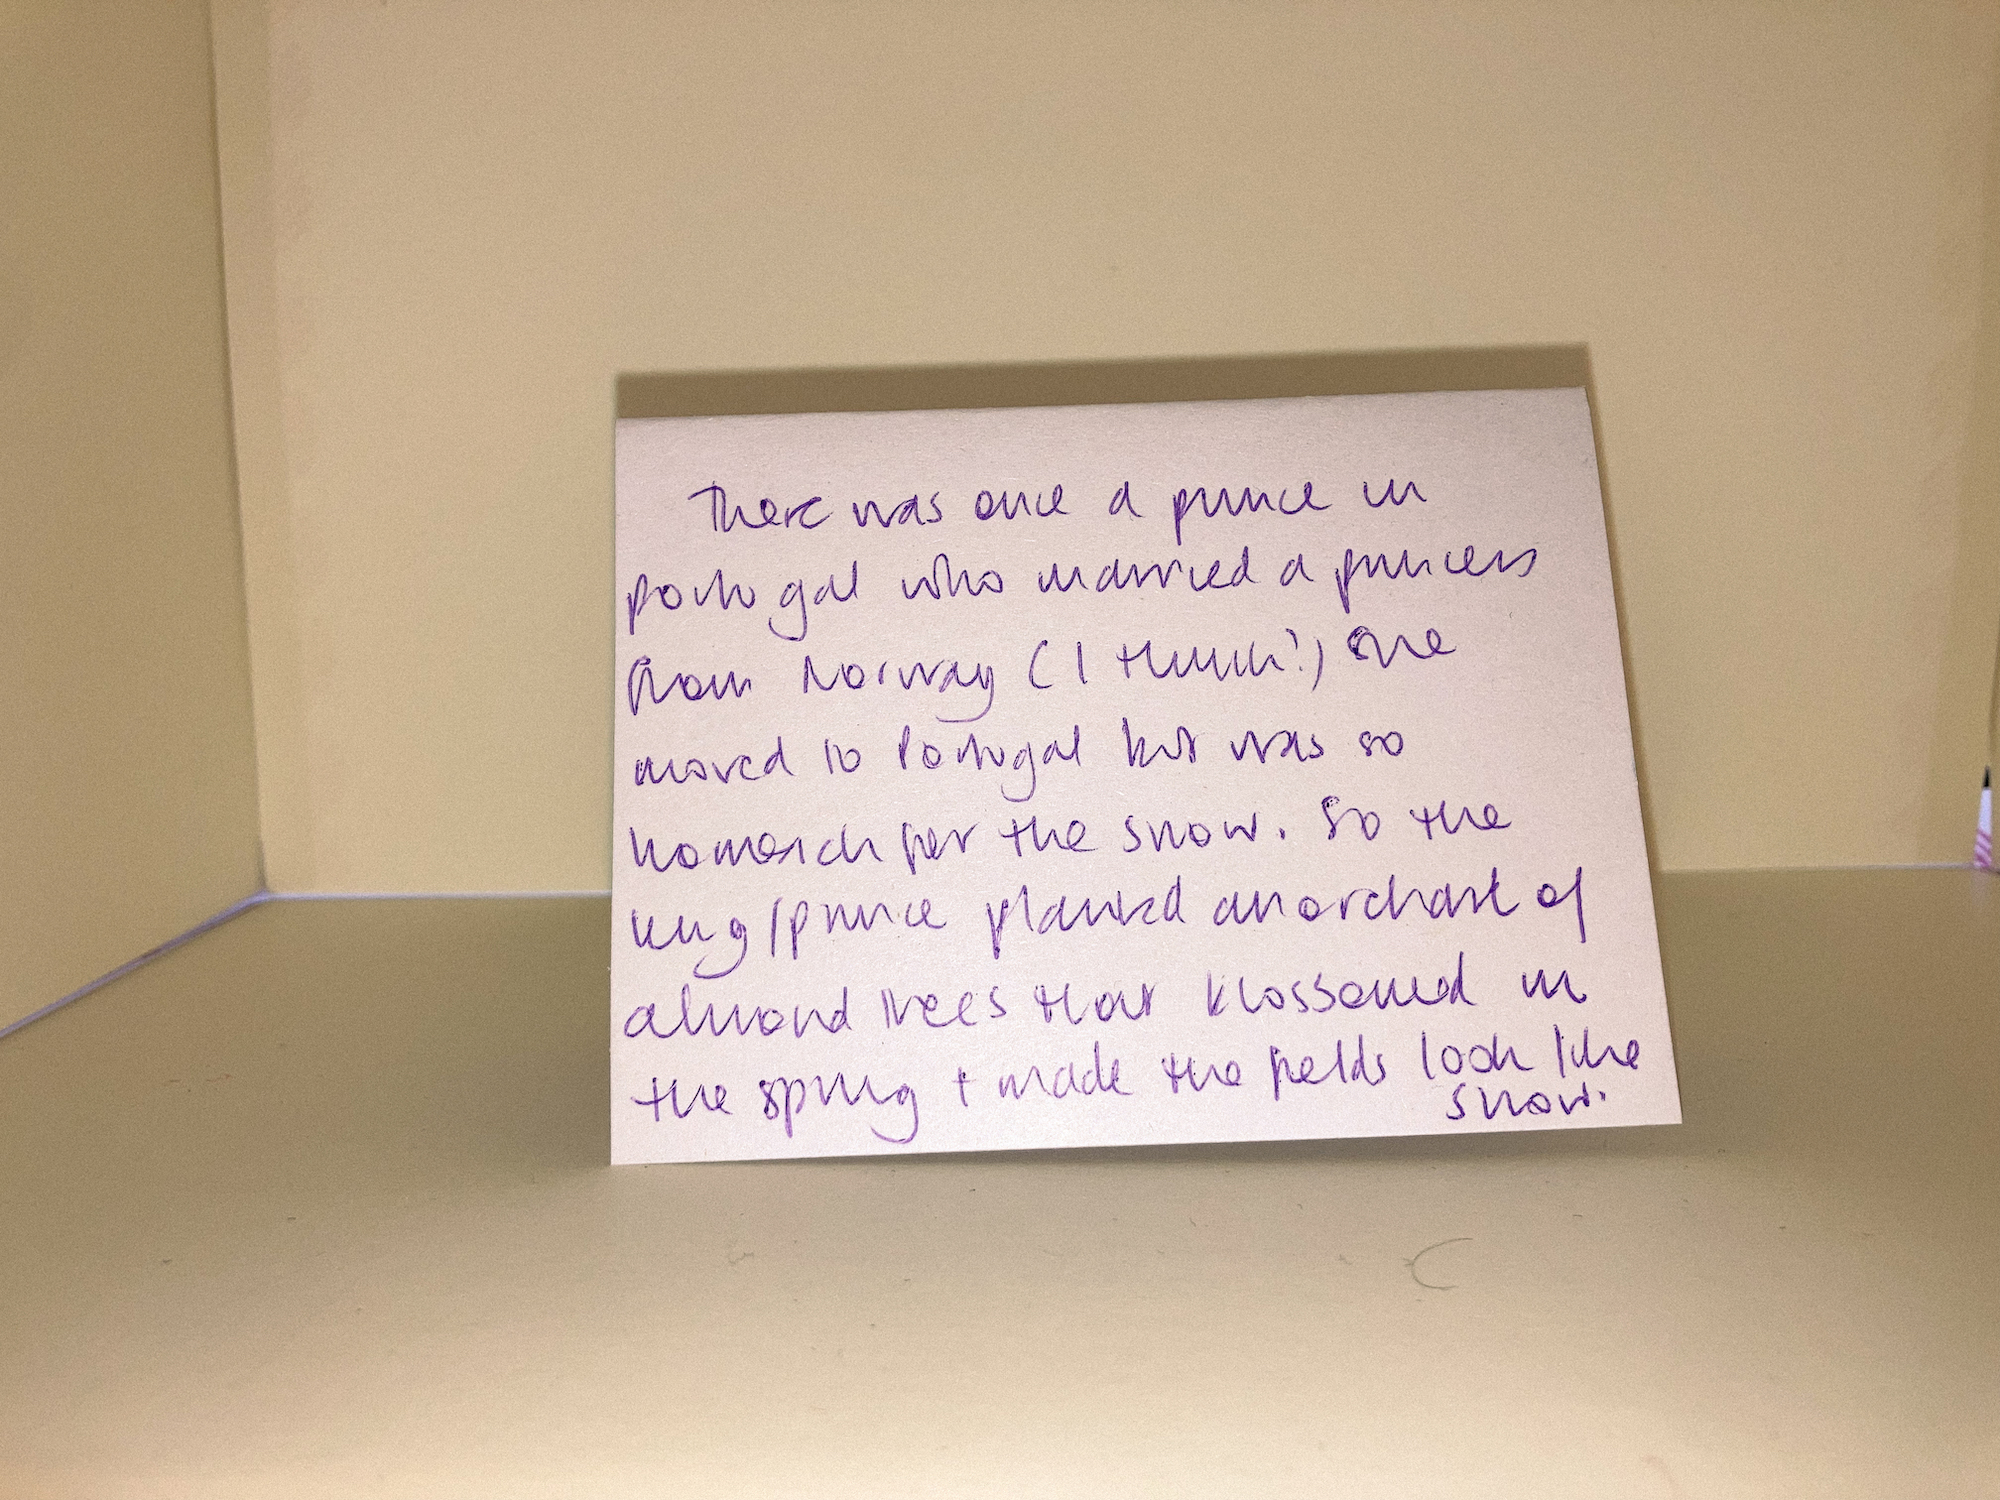 There was once a prince in
Portugal who married a princess
from Norway (I think?) She
moved to Portugal but was so
homesick for the snow. So the
king/prince planted an orchard of
almond trees that blossomed in
the spring + made the fields look like
snow.